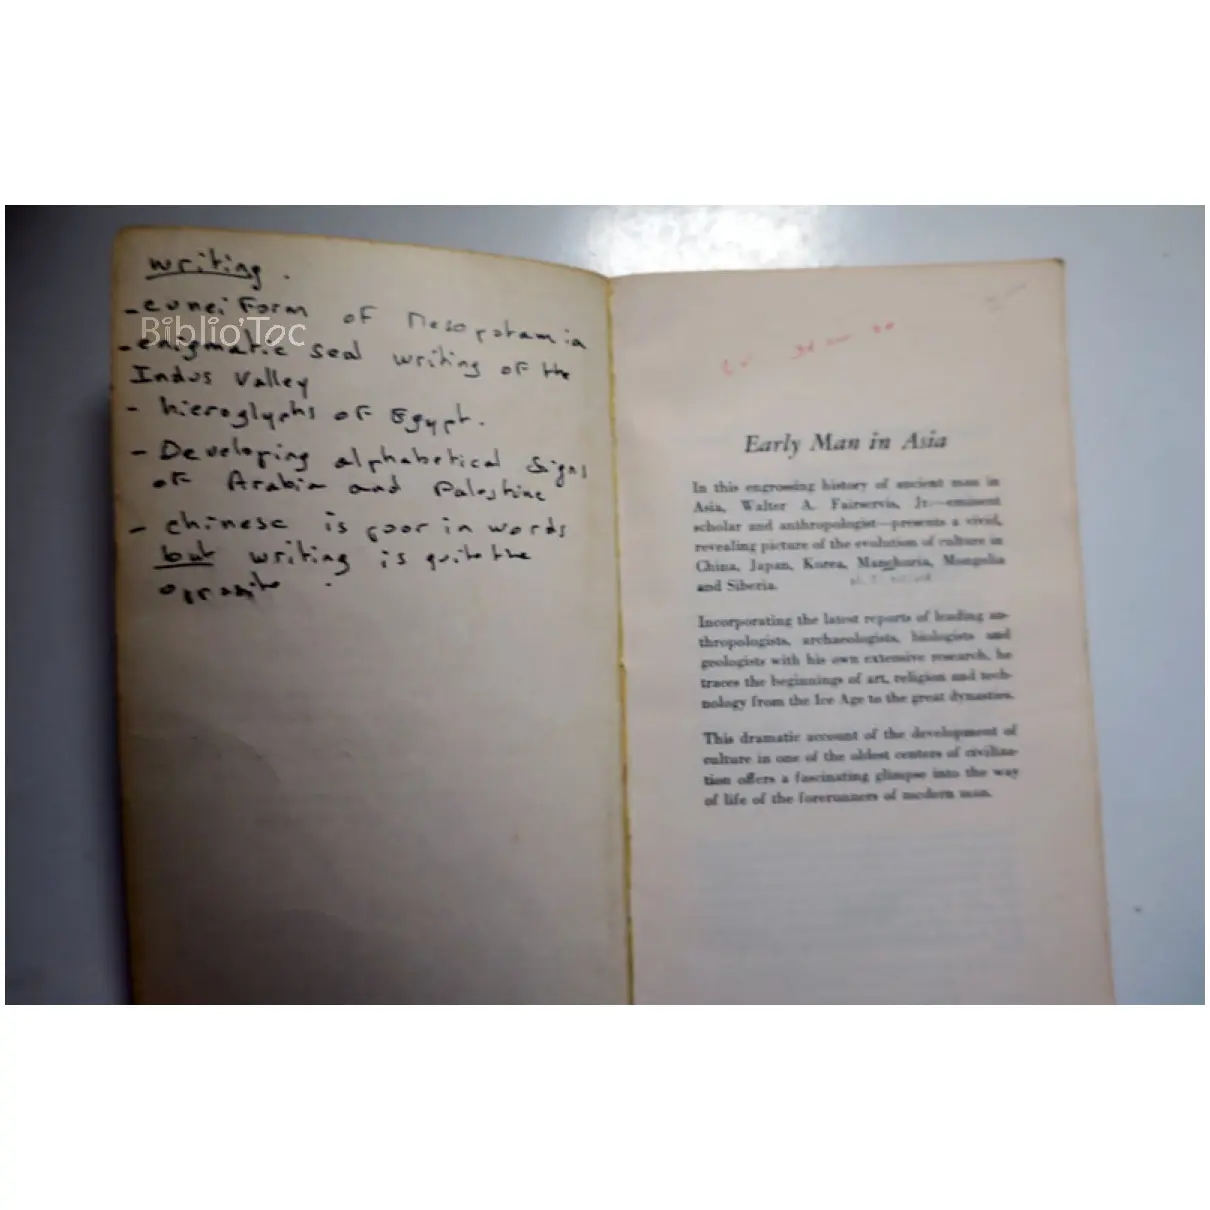 writing.
- cuneiForm of Mesopotamia
Biblio'Toc
- enigmatic seal writing of the
Indus Valley
- hieroglyphs of Egypt.
- Developing alphabetical signs
of Arabia and Palestine
- chinese is poor in words
but writing is quite the
oposite.
Early Man in Asia
In this engrossing history of ancient man in
Asia, Walter A. Fairservis, Jr.—eminent
scholar and anthropologist—presents a vivid,
revealing picture of the evolution of culture in
China, Japan, Korea, Manchuria, Mongolia
and Siberia.
Incorporating the latest reports of leading an-
thropologists, archaeologists, biologists and
geologists with his own extensive research, he
traces the beginnings of art, religion and tech-
nology from the Ice Age to the great dynasties.
This dramatic account of the development of
culture in one of the oldest centers of civiliza-
tion offers a fascinating glimpse into the way
of life of the forerunners of modern man.